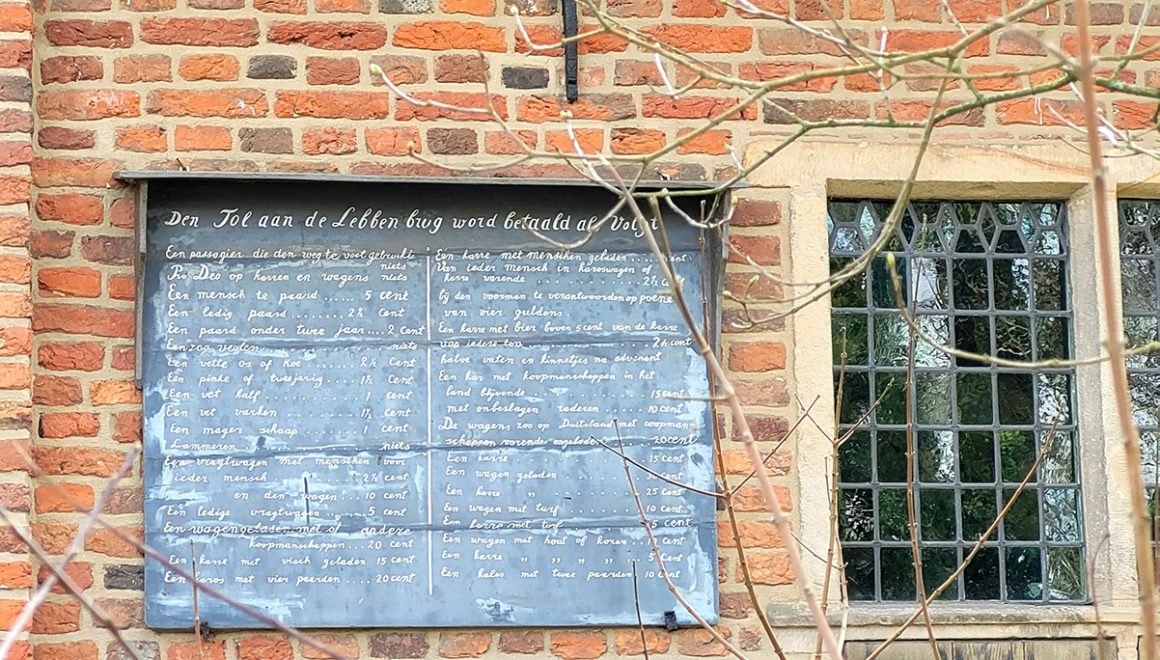 Den Tol aan de Lebben brug word betaald als Volgt
Een passagier die den weg te voet gebruikt niets
Pro Deo op karren en wagens niets
Een mensch te paard ...... 5 cent
Een ledig paard ......... 2½ cent
Een paard onder twee jaar .... 2 cent
Een zog veulen niets
Een vette os of koe ... 2½ cent
Een pinke of tweejarig ... 1½ cent
Een vet kalf ... 1 cent
Een vet varken ... 1½ cent
Een mager schaap ... 1 cent
Lammeren niets
Een vragtwagen met menschen voor
ieder mensch ... 2½ cent
en den wagen ... 10 cent
Een ledige vragtwagen ... 5 cent
Een wagen geladen met of andere
koopmanschappen ... 20 cent
Een karre met visch geladen 15 cent
Een karos met vier paerden ... 20 cent
Een karre met menschen geladen ... cent
Van ieder mensch in karoswagen of
karre varende ........ 2½ cent
bij den voerman te verantwoorden op poene
van vier guldens.
Een karre met bier boven 5 cent van de karre
van iedere ton ... 2½ cent
halve vaten en kinnetjes na advenant
Een kar met koopmanschappen in het
land blijvende ... 15 cent
met onbeslagen raderen ... 10 cent
De wagens zoo op Duitsland met coopman
schappen varende ongeladen 20 cent
Een karre ... 15 cent
Een wagen geladen ... cent
Een karre " ... 25 cent
Een wagen met turf ... 10 cent
Een karre met turf ... 5 cent
Een wagen met hout of koren ... cent
Een karre " " " " 5 cent
Een hales met twee paarden 10 cent